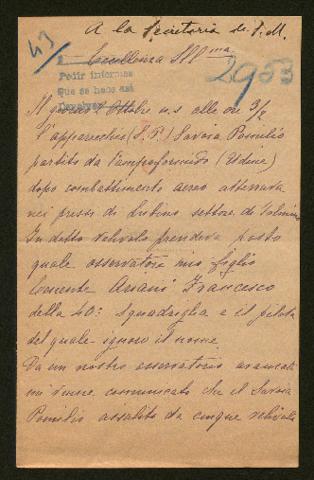 A la Secretaria de S. M.
43
Eccellenza Ill^ma
Pedir informes
Que se haga así
2953
Il giorno Ottobre u.s alle ore 3/2
l'apparecchio (S. P.) Savoia Pomilio
partito da Campoformido (Udine)
dopo combattimento aereo atterrava
nei pressi di Lubino settore di Tolmino
In detto velivolo prendeva posto
quale osservatore mio figlio
tenente Anani Francesco
della 40: Squadriglia e il pilota
del quale ignoro il nome.
Da un nostro osservatorio avanzato
mi venne comunicato che il Savoia
Pomilio assalito da cinque velivoli